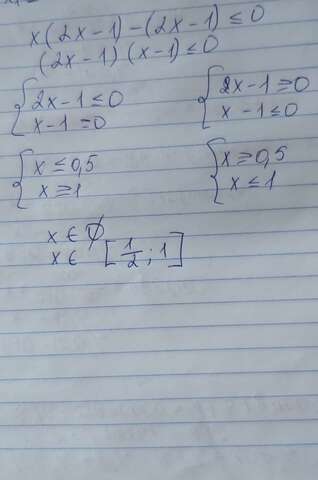 x(2x-1)-(2x-1)≤0
(2x-1)(x-1)≤0
{2x-1≤0 {2x-1≥0
{x-1≥0 {x-1≤0
{x≤0,5 {x≥0,5
{x≥1 {x≤1
x∈∅
x∈ [1/2;1]